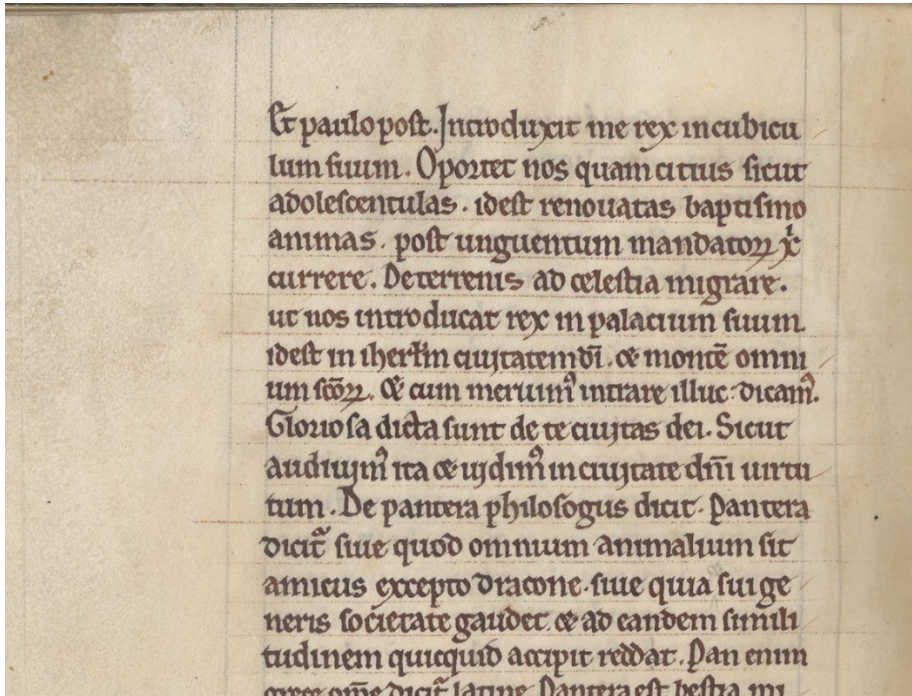 Et paulo post. Introduxit me rex in cubicu
lum suum. Oportet nos quam citius sicut
adolescentulas. idest renouatas baptismo
animas. post unguentum mandatoꝝ xͥ
currere. De terrenis ad celestia migrare.
ut nos introducat rex in palacium suum.
idest in iherłm ciuitatem dī. & montē omni
um scōꝝ. & cum meruimꝰ intrare illuc. dicamꝰ.
Gloriosa dicta sunt de te ciuitas dei. Sicut
audiuimꝰ ita & uidimꝰ in ciuitate dn̄i uirtu
tum. De pantera philosogus dicit. Pantera
dicit᷑ siue quod omnium animalium sit
amicus excepto dracone. siue quia sui ge
neris societate gaudet. & ad eandem simili
tudinem quicquid accipit reddat. Pan enim
grece om̄e dicit᷑ latine. Pantera est bestia mi